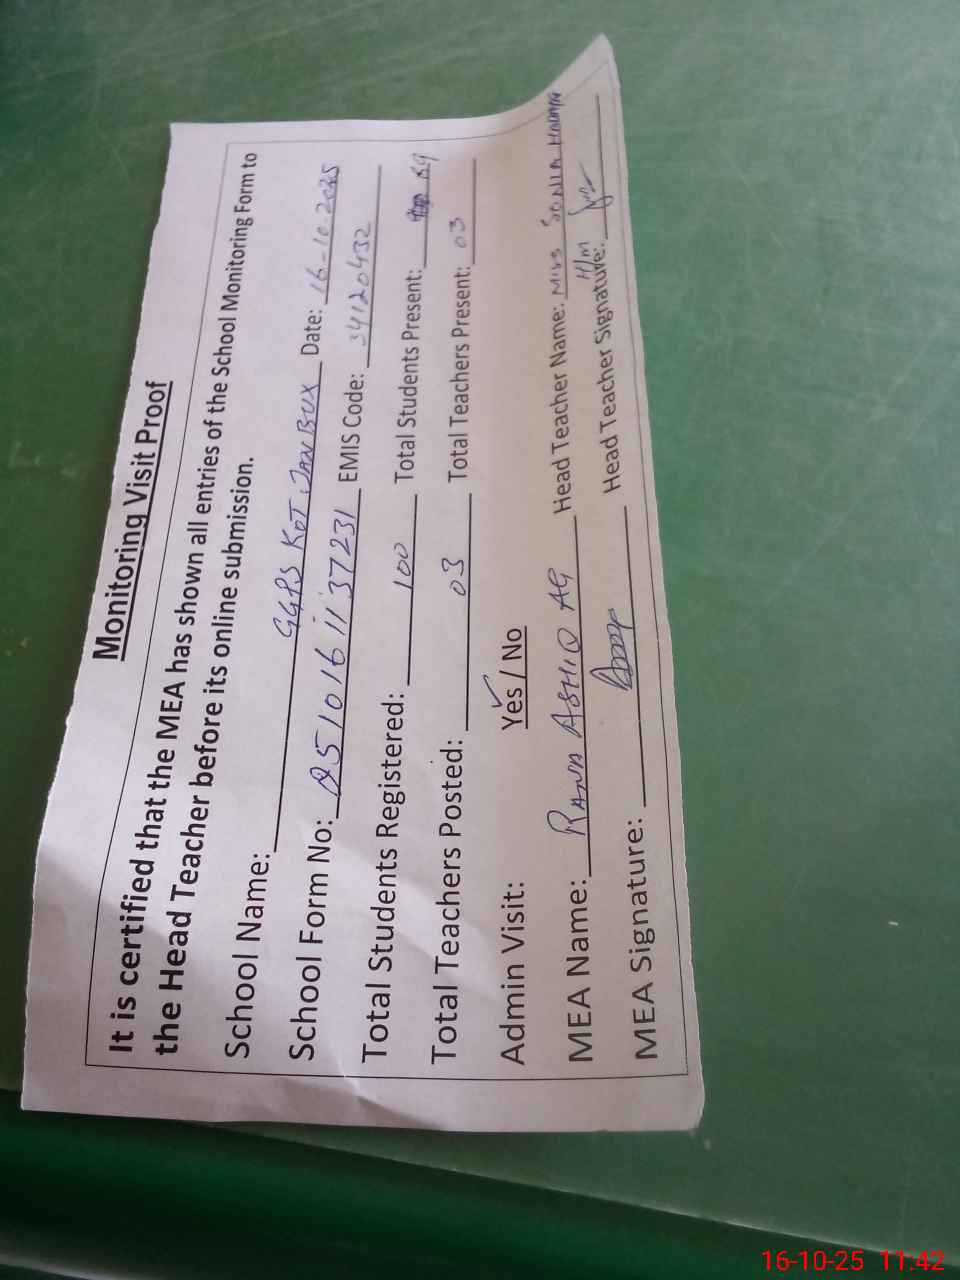 Monitoring Visit Proof
It is certified that the MEA has shown all entries of the School Monitoring Form to
the Head Teacher before its online submission.
School Name: GGPS KOT JAN BUX Date: 16-10-2025
School Form No: 2510161137231 EMIS Code: 34120432
Total Students Registered: 100 Total Students Present: 89
Total Teachers Posted: 03 Total Teachers Present: 03
Admin Visit: Yes ✓ / No
MEA Name: RANA ASHIQ AG Head Teacher Name: MISS SONIA
H/M
MEA Signature: Head Teacher Signature:
16-10-25 11:42